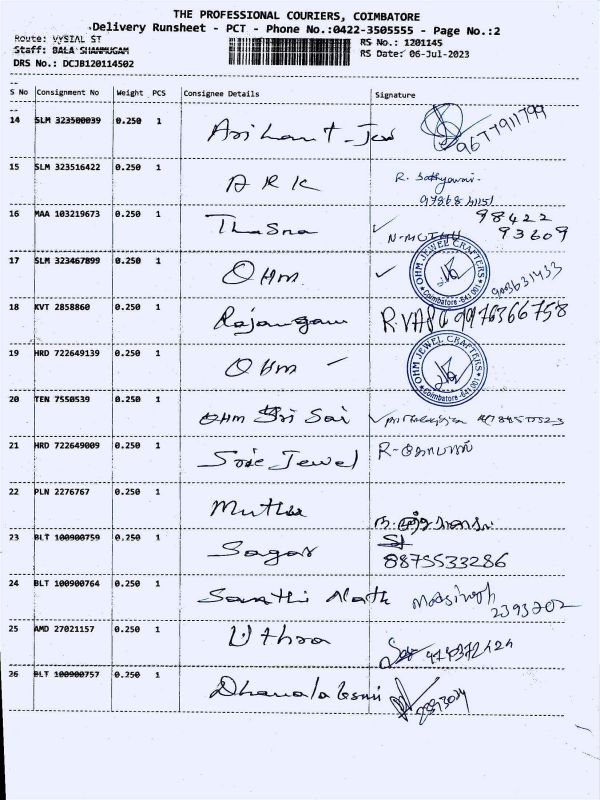 THE PROFESSIONAL COURIERS, COIMBATORE
Delivery Runsheet - PCT - Phone No.:0422-3505555 - Page No.:2
Route: VYSIAL ST RS No.: 1201145
Staff: BALA SHANMUGAM RS Date: 06-Jul-2023
DRS No.: DCJB120114502
S No Consignment No Weight PCS Consignee Details Signature
14 SLM 323500039 0.250 1 Arihant-Jew 9677911799
15 SLM 323516422 0.250 1 A R K R. Sathyavani
16 MAA 103219673 0.250 1 Thasna 98422
93609
17 SLM 323467899 0.250 1 OHM
OHM JEWEL CRAFTERS
Coimbatore-641 001
18 KVT 2858860 0.250 1 Rajangam 9976366758
19 HRD 722649139 0.250 1 OHM
OHM JEWEL CRAFTERS
Coimbatore-641 001
20 TEN 7550539 0.250 1 OHM Sri Sai
21 HRD 722649009 0.250 1 Sree Jewel
22 PLN 2276767 0.250 1 Muthu
23 BLT 100900759 0.250 1 Sagar
8875533286
24 BLT 100900764 0.250 1 Sarathi Nath
2393202
25 AMD 27021157 0.250 1 Uthra
26 BLT 100900757 0.250 1 Dhanalakshmi